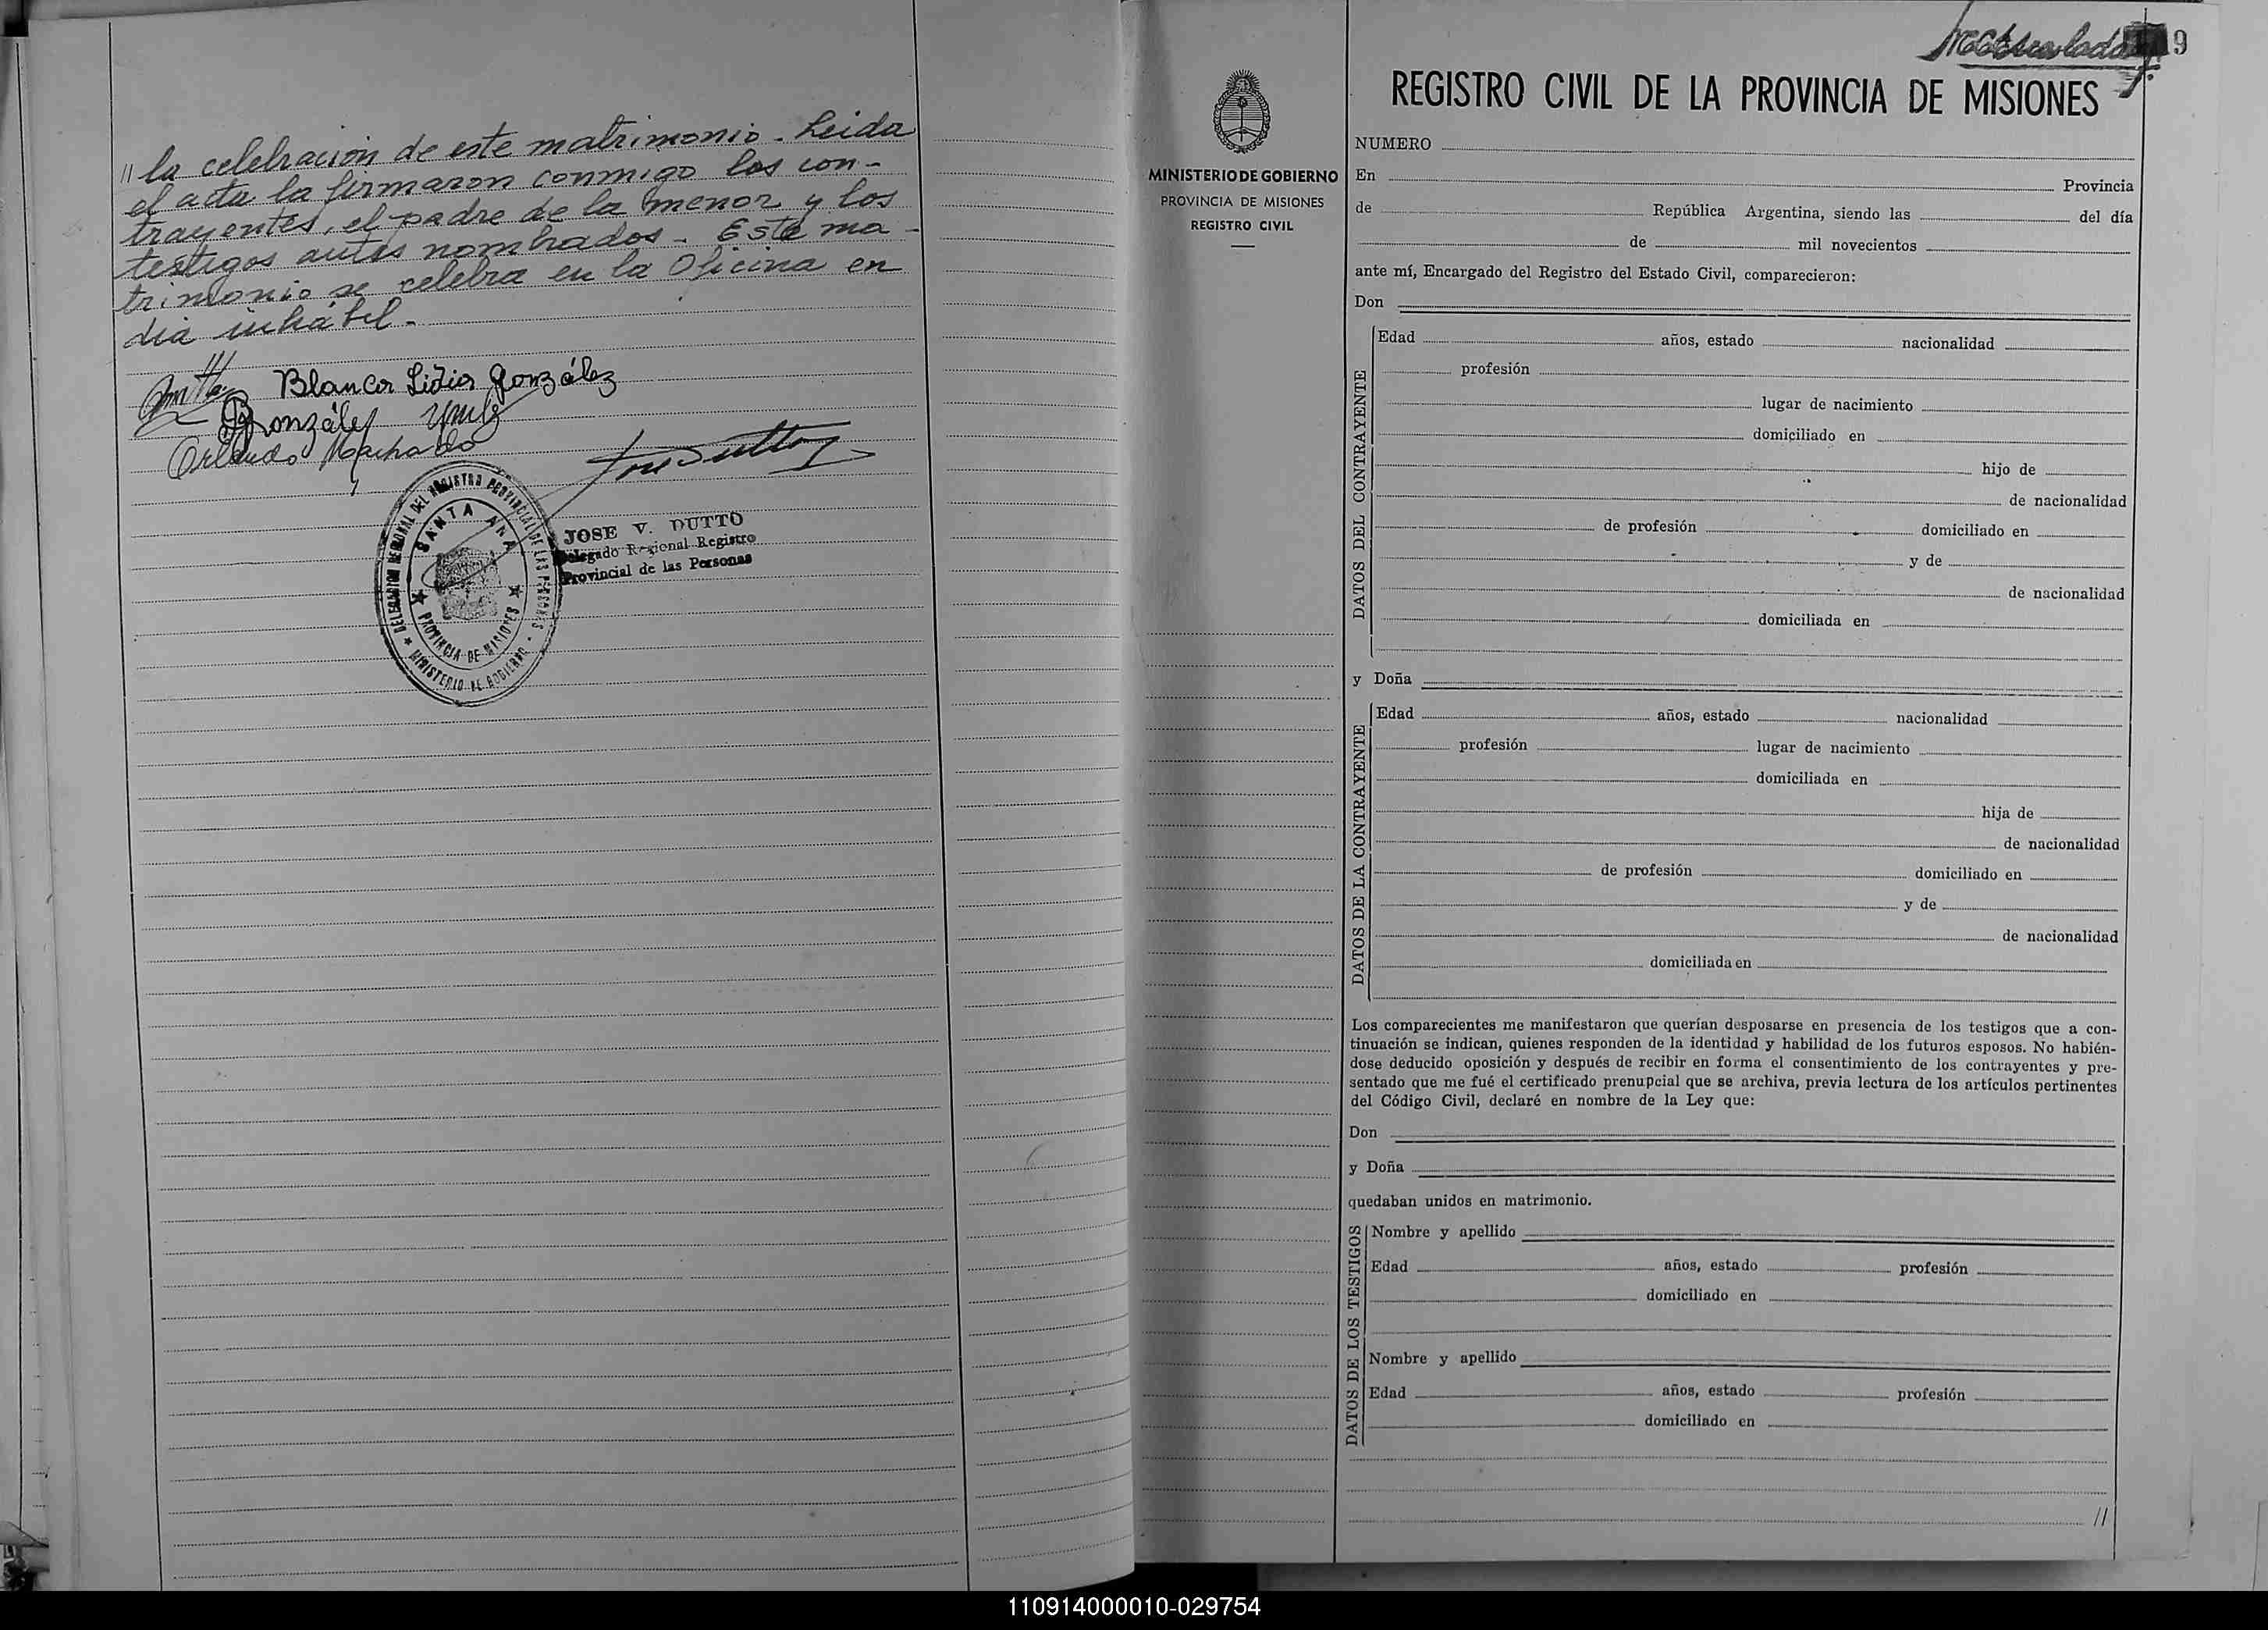 // la celebración de este matrimonio. Leida
el acta la firmaron conmigo los con-
trayentes, el padre de la menor y los
testigos antes nombrados. Este ma-
trimonio se celebra en la Oficina en
dia inhábil.-
Blanca Lidia González
González
Orlando Machado
DELEGACION REGIONAL DEL REGISTRO PROVINCIAL DE LAS PERSONAS
SANTA ANA
PROVINCIA DE MISIONES
MINISTERIO DE GOBIERNO
JOSE V. DUTTO
Delegado Regional Registro
Provincial de las Personas
MINISTERIO DE GOBIERNO
PROVINCIA DE MISIONES
REGISTRO CIVIL
9
REGISTRO CIVIL DE LA PROVINCIA DE MISIONES
NUMERO
En Provincia
de República Argentina, siendo las del día
de mil novecientos
ante mí, Encargado del Registro del Estado Civil, comparecieron:
Don
DATOS DEL CONTRAYENTE
Edad años, estado nacionalidad
profesión
lugar de nacimiento
domiciliado en
hijo de
de nacionalidad
de profesión domiciliado en
y de
de nacionalidad
domiciliada en
y Doña
DATOS DE LA CONTRAYENTE
Edad años, estado nacionalidad
profesión lugar de nacimiento
domiciliada en
hija de
de nacionalidad
de profesión domiciliado en
y de
de nacionalidad
domiciliada en
Los comparecientes me manifestaron que querían desposarse en presencia de los testigos que a con-
tinuación se indican, quienes responden de la identidad y habilidad de los futuros esposos. No habién-
dose deducido oposición y después de recibir en forma el consentimiento de los contrayentes y pre-
sentado que me fué el certificado prenupcial que se archiva, previa lectura de los artículos pertinentes
del Código Civil, declaré en nombre de la Ley que:
Don
y Doña
quedaban unidos en matrimonio.
DATOS DE LOS TESTIGOS
Nombre y apellido
Edad años, estado profesión
domiciliado en
Nombre y apellido
Edad años, estado profesión
domiciliado en
//
110914000010-029754